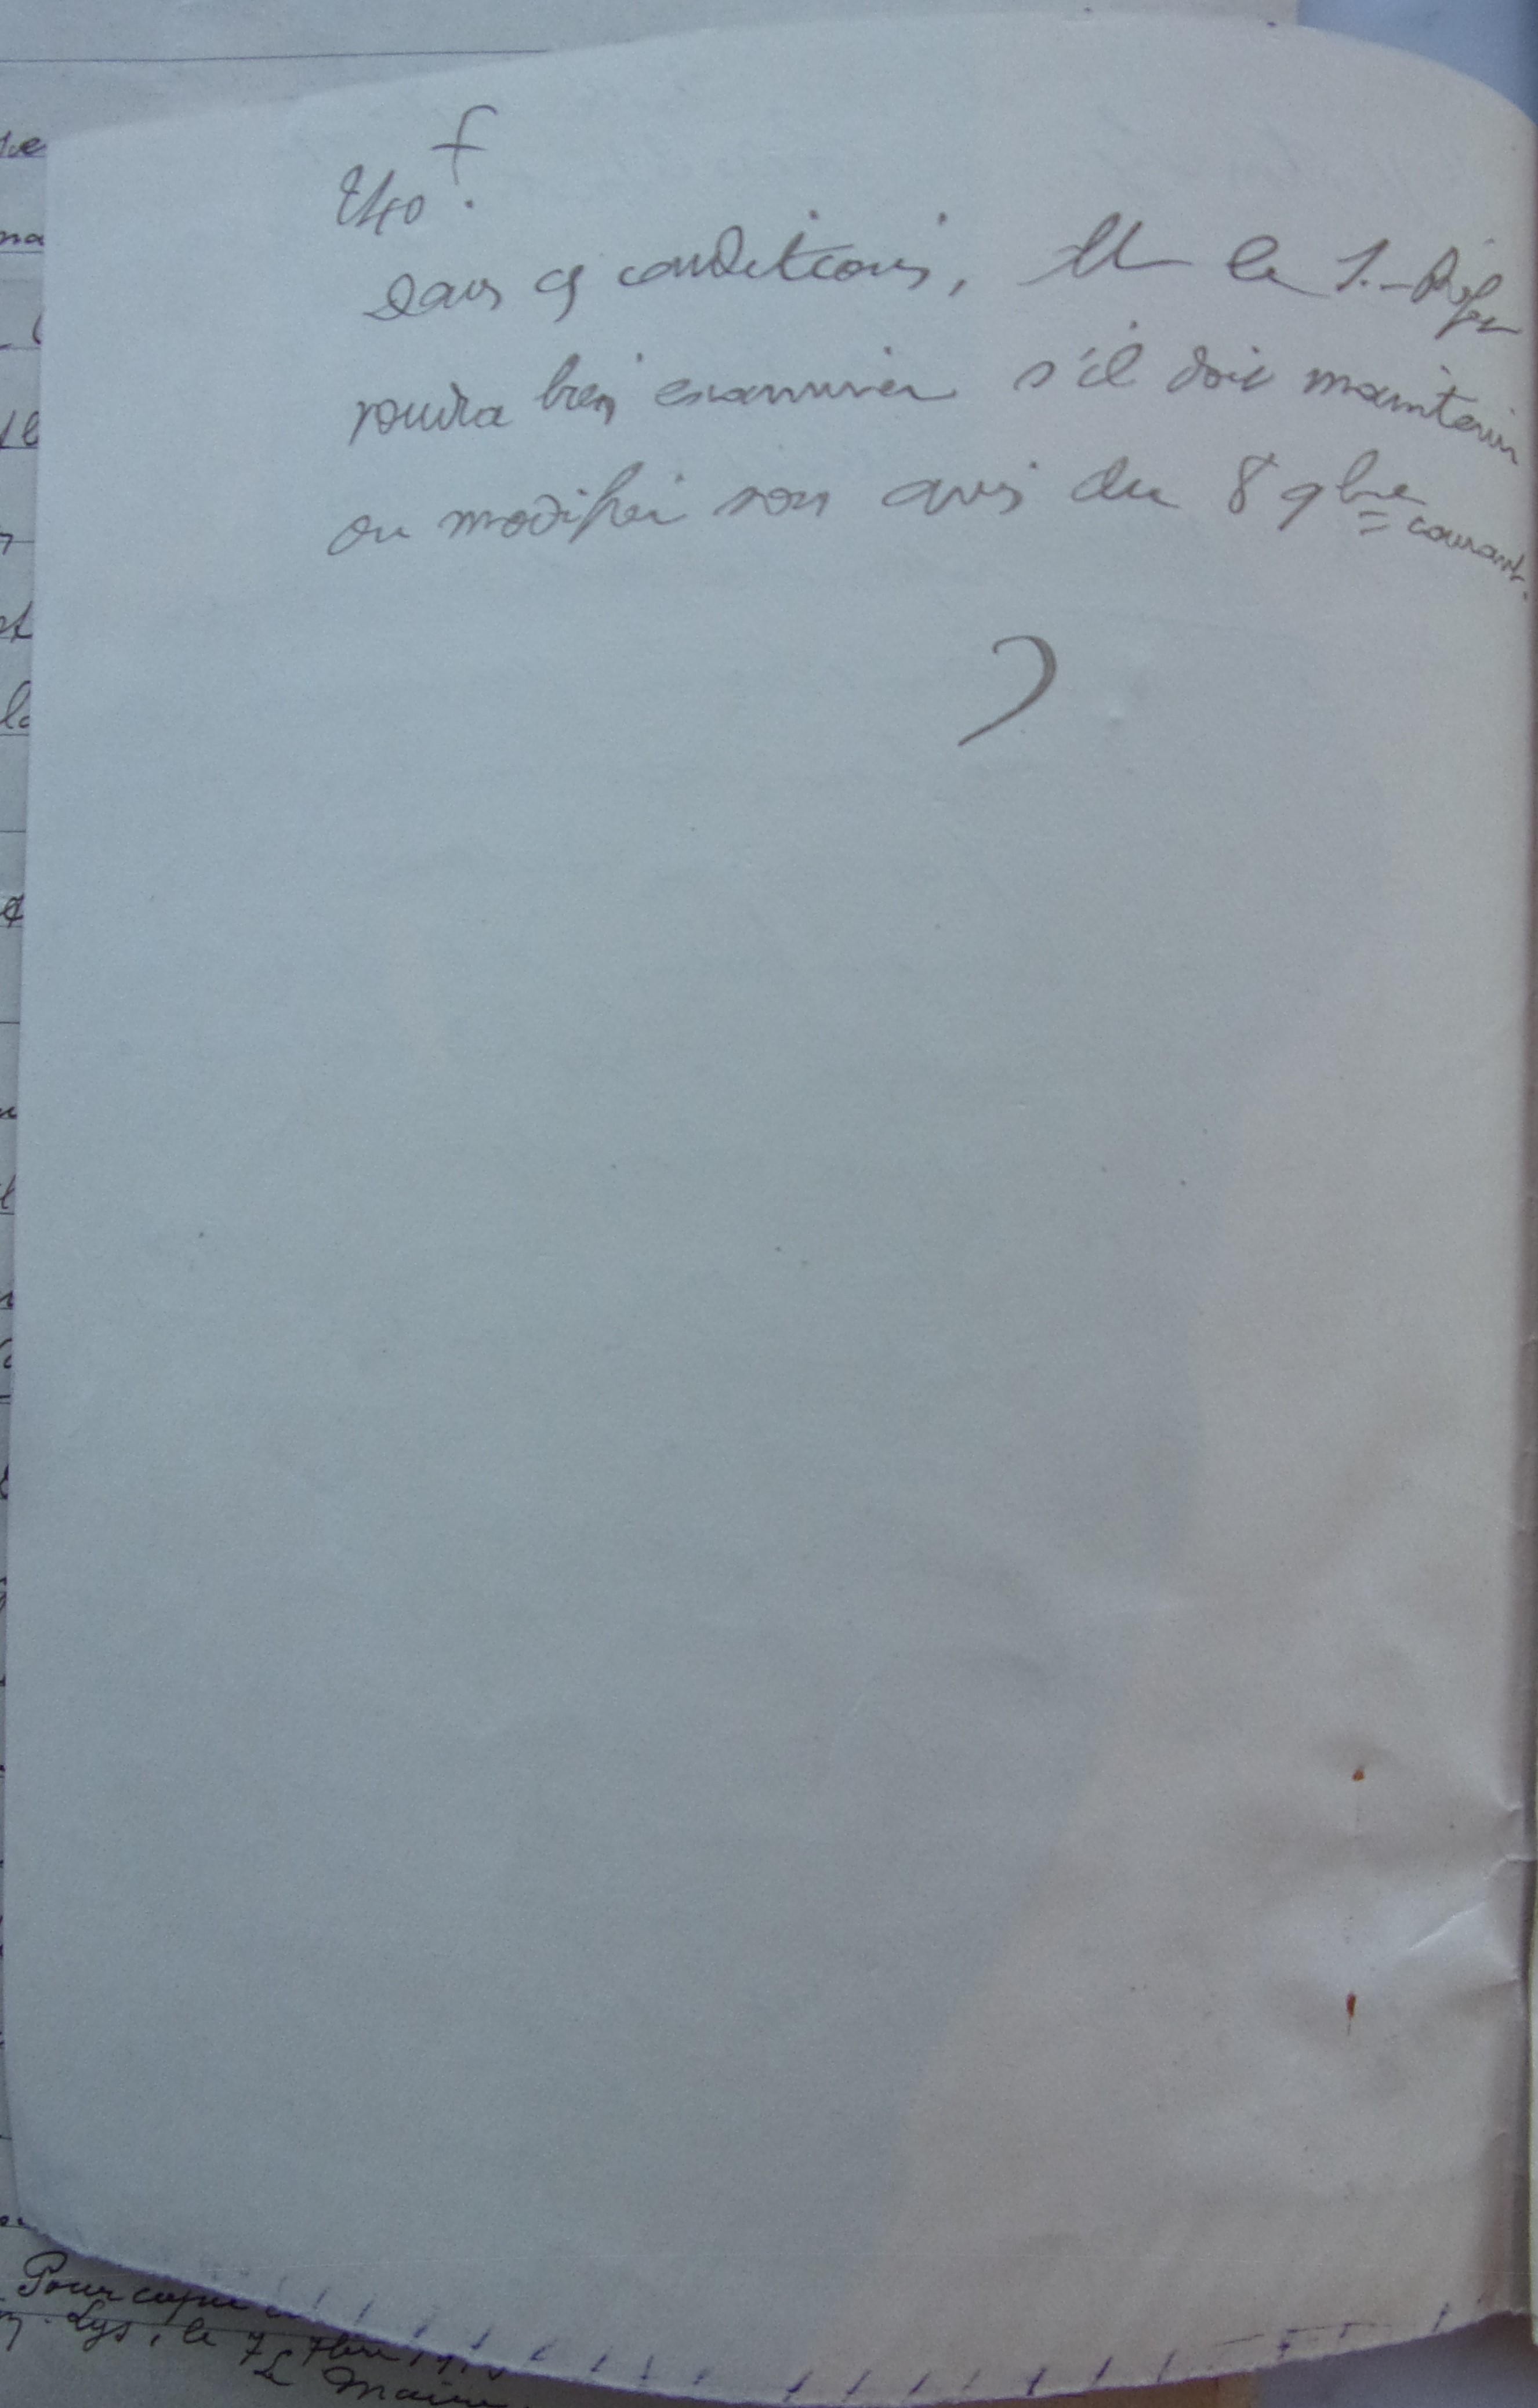 240 f.
Dans ces conditions, M le S.-Préfet
voudra bien examiner s'il doit maintenir
ou modifier son avis du 8 9bre courant.
Pour copie
Lys, le 7 7bre
Le Maire